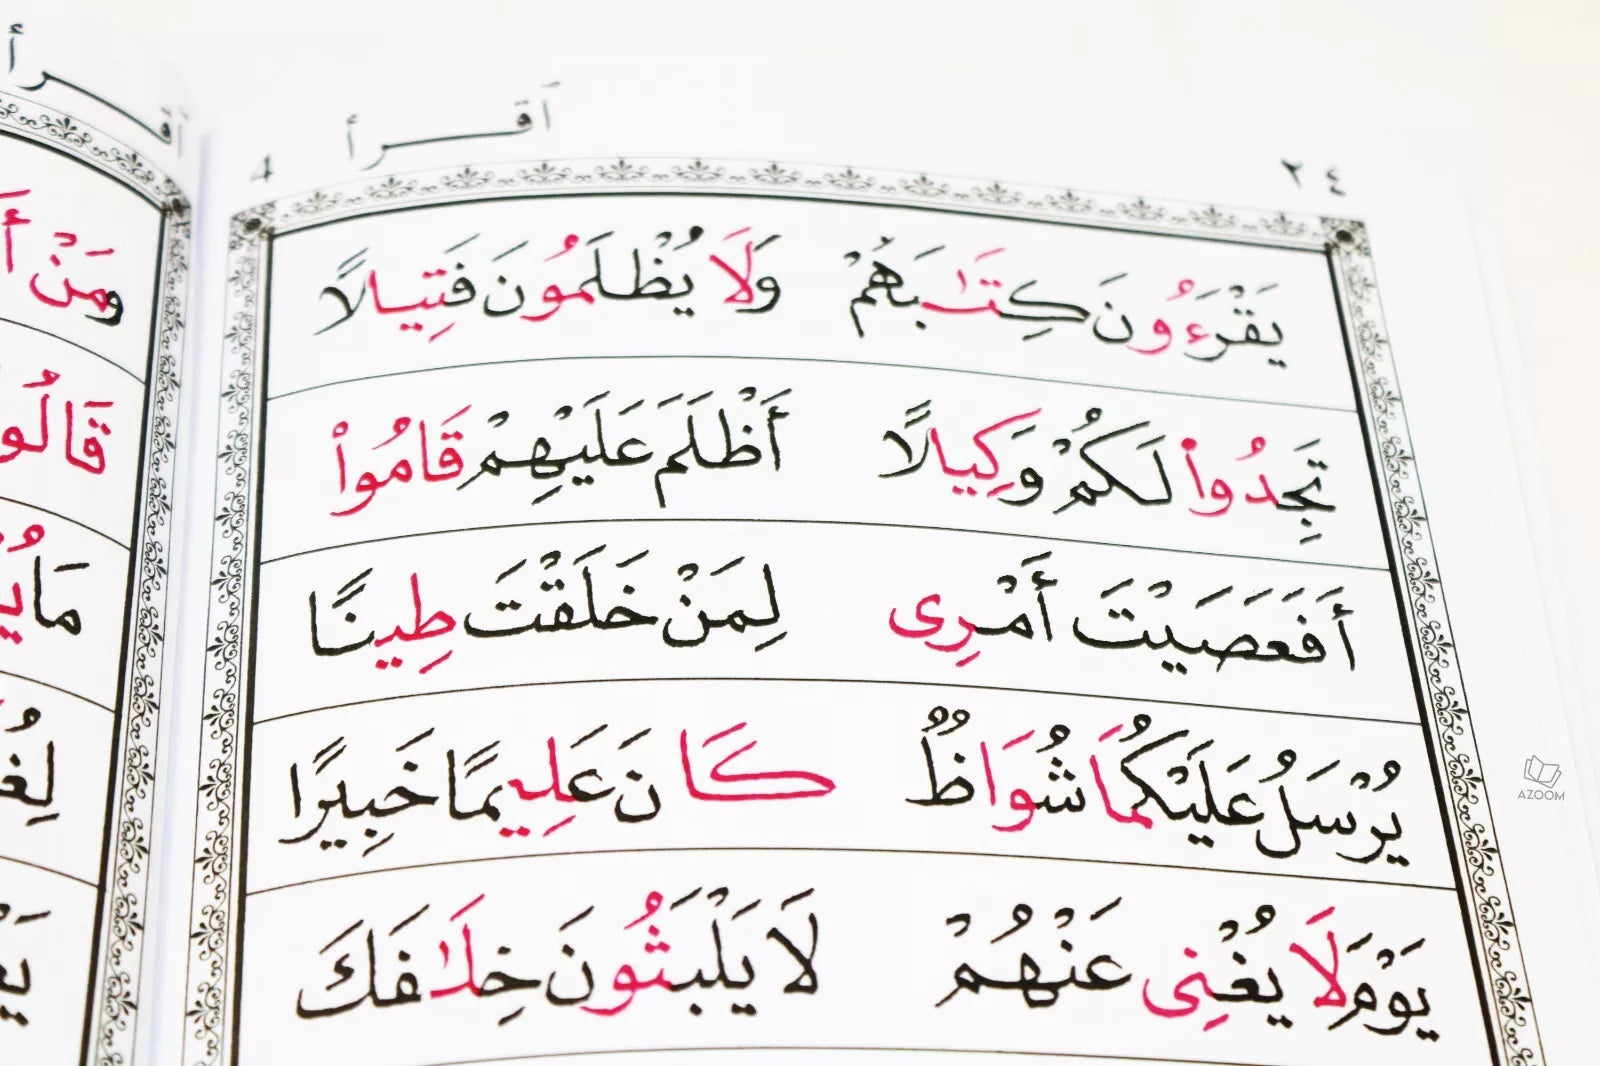 ٢٤ اَقْـــرأ 4
يَقْرَءُونَ كِتَٰبَهُمْ وَلَا يُظْلَمُونَ فَتِيلًا
تَجِدُواْ لَكُمْ وَكِيلًا أَظْلَمَ عَلَيْهِمْ قَامُواْ
أَفَعَصَيْتَ أَمْرِى لِمَنْ خَلَقْتَ طِينًا
يُرْسَلُ عَلَيْكُمَا شُوَاظٌ كَانَ عَلِيمًا خَبِيرًا
يَوْمَ لَا يُغْنِى عَنْهُمْ لَا يَلْبَثُونَ خِلَٰفَكَ
وَمَنْ أَ
قَالُو
مَا يُ
AZOOM